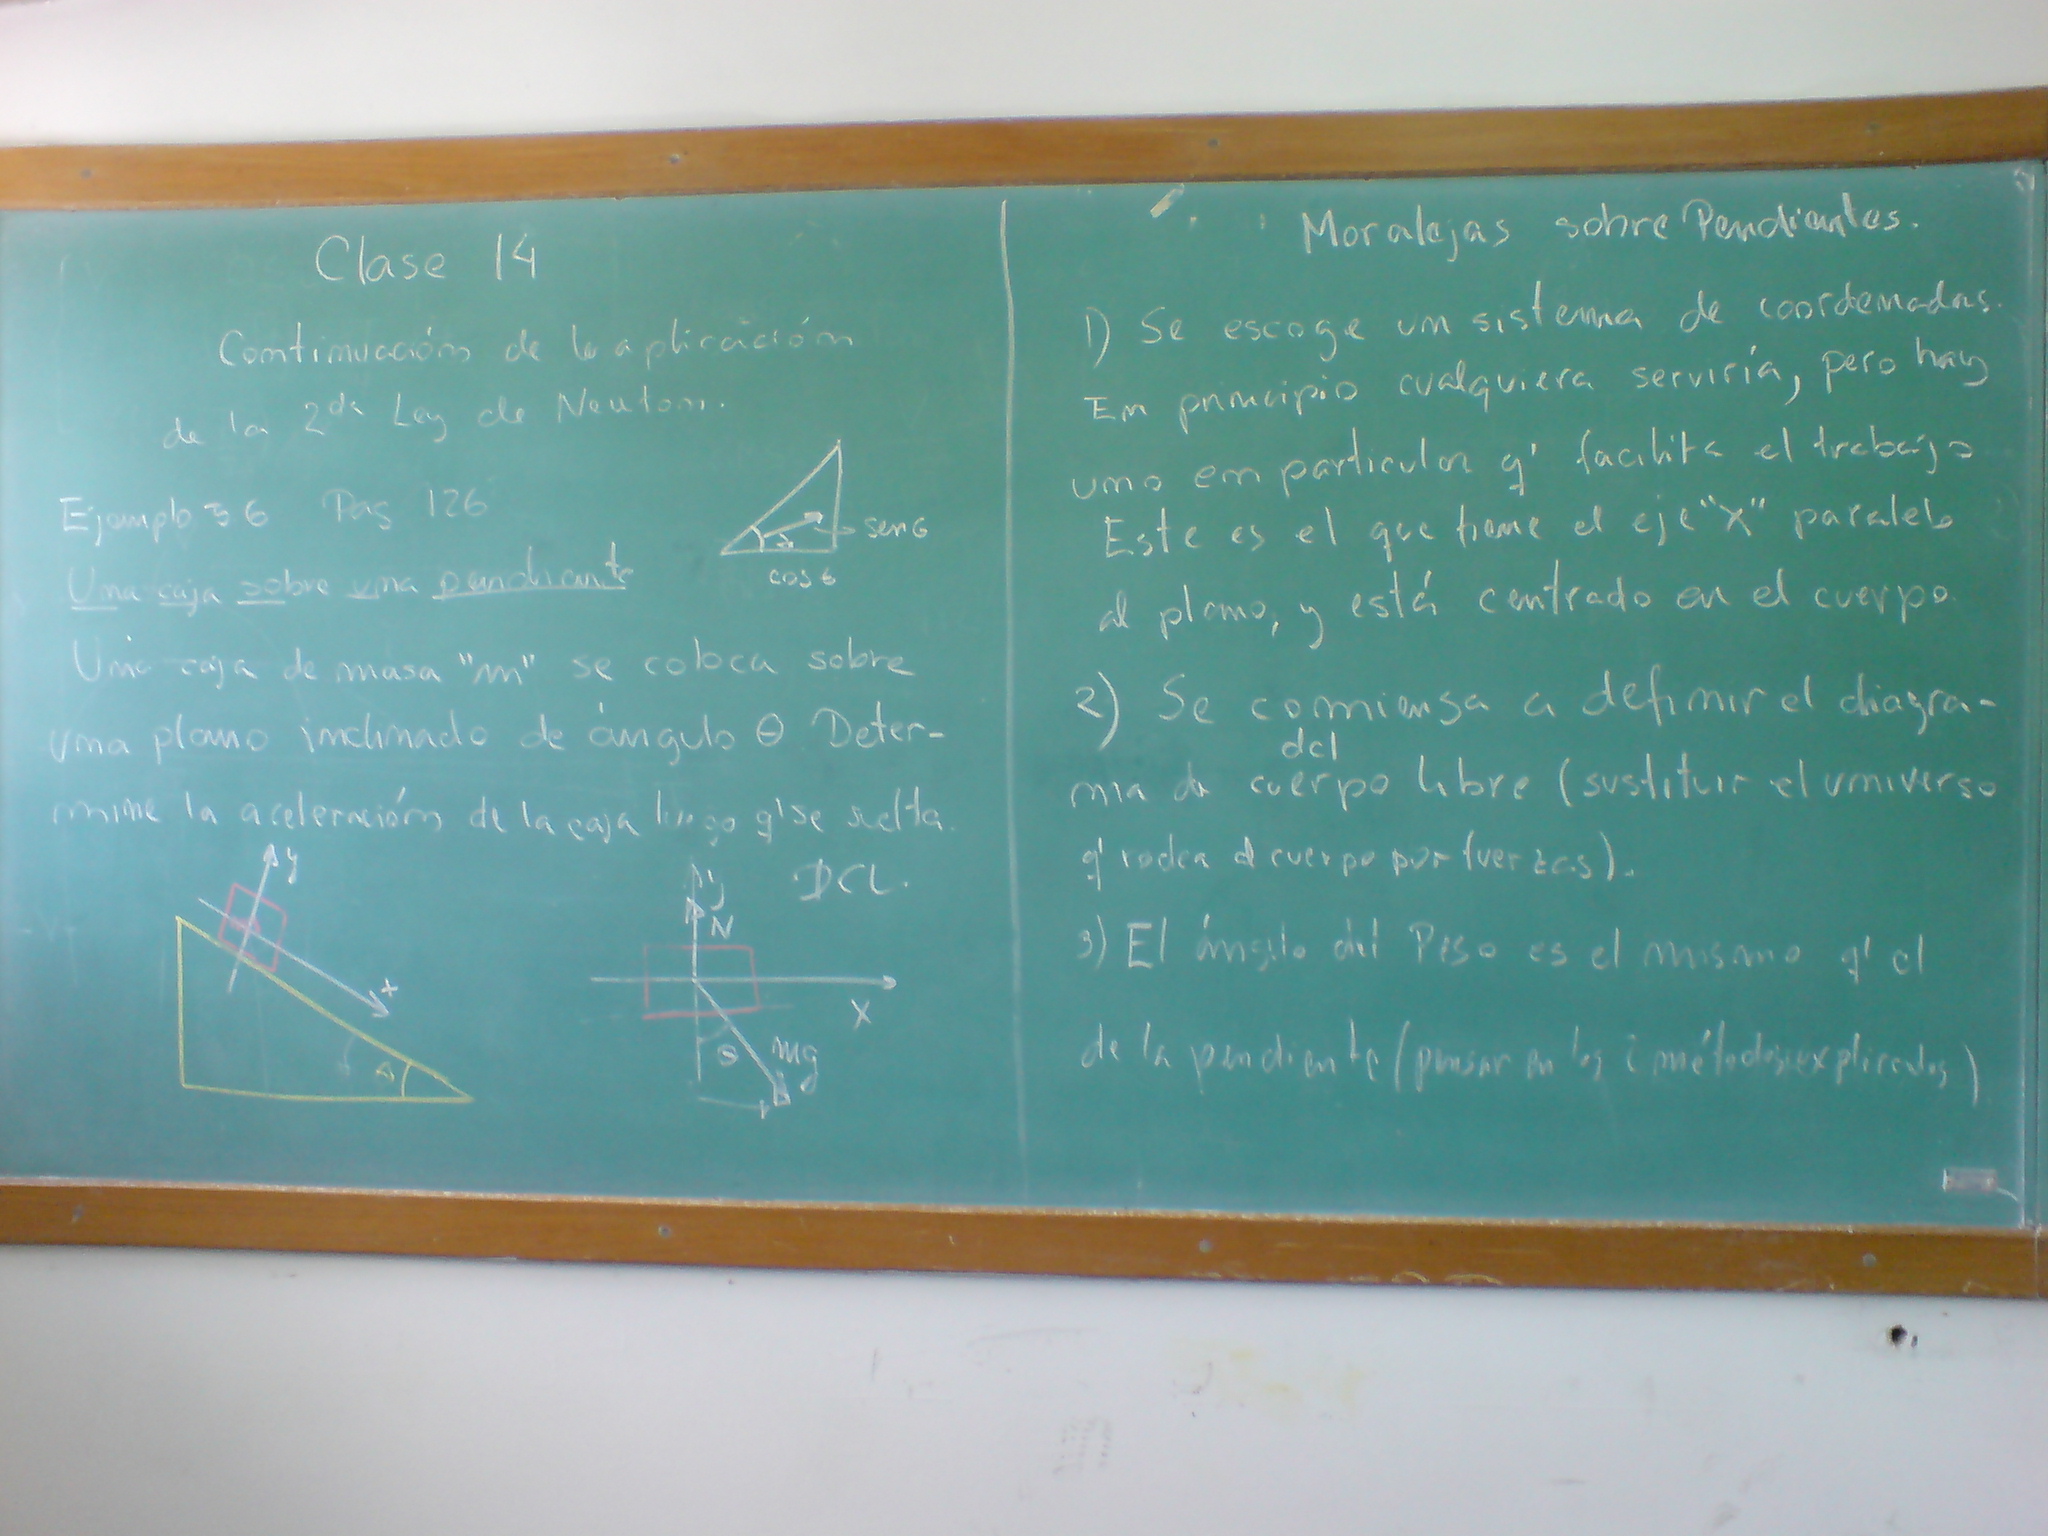 Clase 14
Continuación de la aplicación
de la 2da Ley de Newton.
Ejemplo 5 6 Pag 126
Una caja sobre una pendiente
sen θ
cos θ
Una caja de masa "m" se coloca sobre
una plano inclinado de ángulo θ Deter-
mine la aceleración de la caja luego q' se suelta.
y
x
DCL.
y
N
X
θ
mg
Moralejas sobre Pendientes.
1) Se escoge un sistema de coordenadas.
En principio cualquiera serviría, pero hay
uno en particular q' facilita el trabajo
Este es el que tiene el eje "X" paralelo
al plano, y está centrado en el cuerpo.
2) Se comiensa a definir el diagra-
del
ma de cuerpo libre (sustituir el universo
q' rodea el cuerpo por fuerzas).
3) El ángulo del Peso es el mismo q' el
de la pendiente (pensar en los métodos explicados)